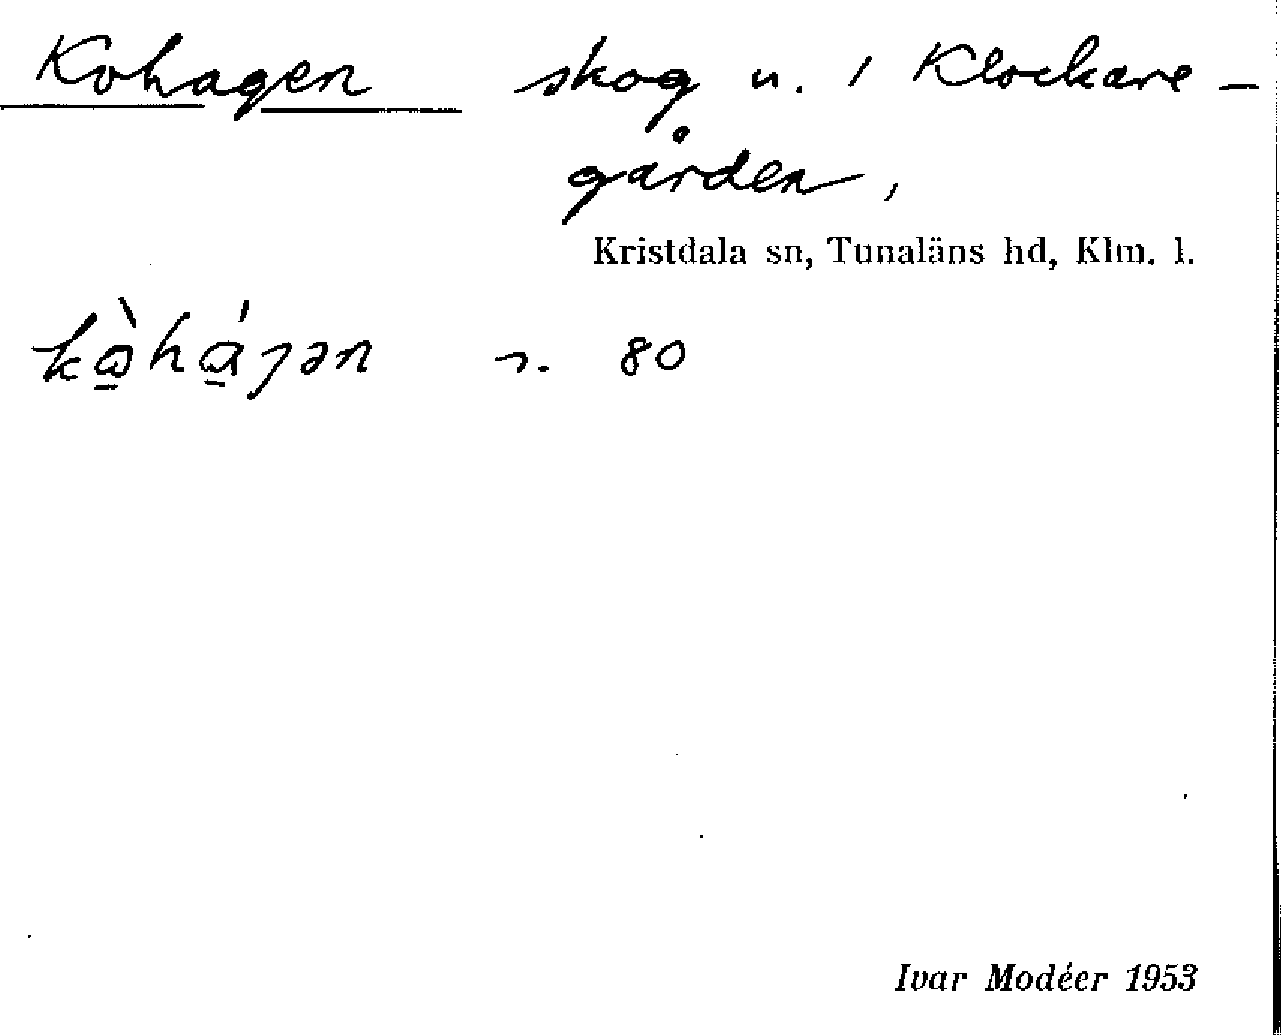 Kohagen skog u. 1 Klockare-
gården,
Kristdala sn, Tunaläns hd, Klm. l.
s. 80
Ivar Modéer 1953